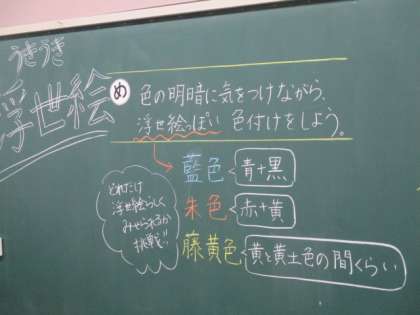 うきうき
浮世絵
め 色の明暗に気をつけながら、
浮世絵っぽい 色付けをしよう。
藍色 青+黒
朱色 赤+黄
藤黄色 黄と黄土色の間くらい
どれだけ
浮世絵らしく
みせられるか
挑戦!!